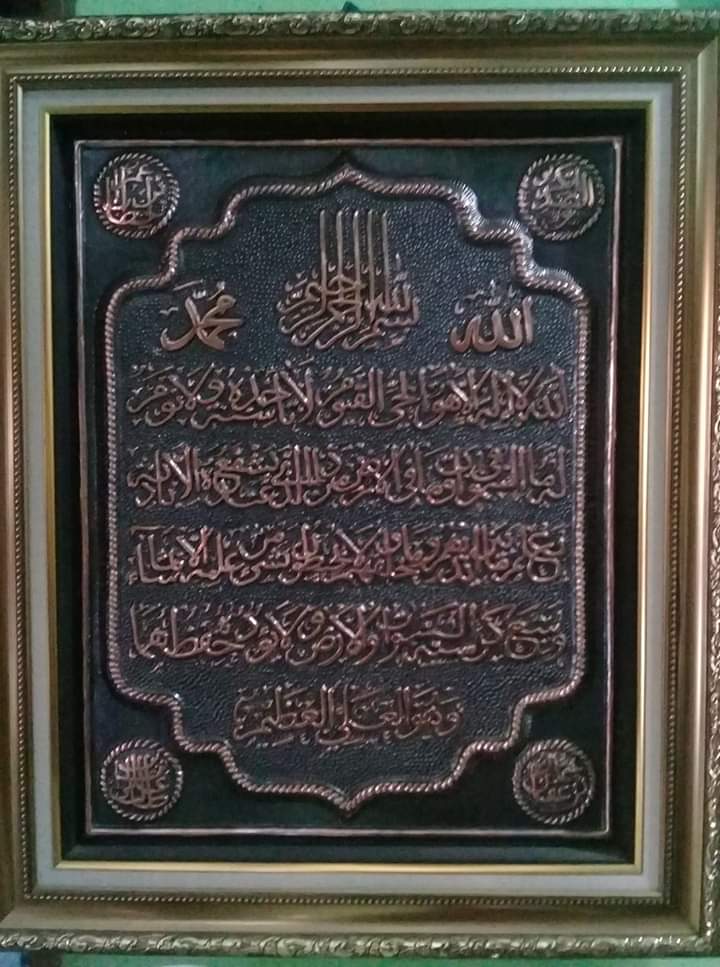 الله
بسم الله الرحمن الرحيم
محمد
الله لا إله إلا هو الحي القيوم لا تأخذه سنة ولا نوم
له ما في السموات وما في الأرض من ذا الذي يشفع عنده إلا بإذنه
يعلم ما بين أيديهم وما خلفهم ولا يحيطون بشيء من علمه إلا بما شاء
وسع كرسيه السموات والأرض ولا يؤده حفظهما
وهو العلي العظيم